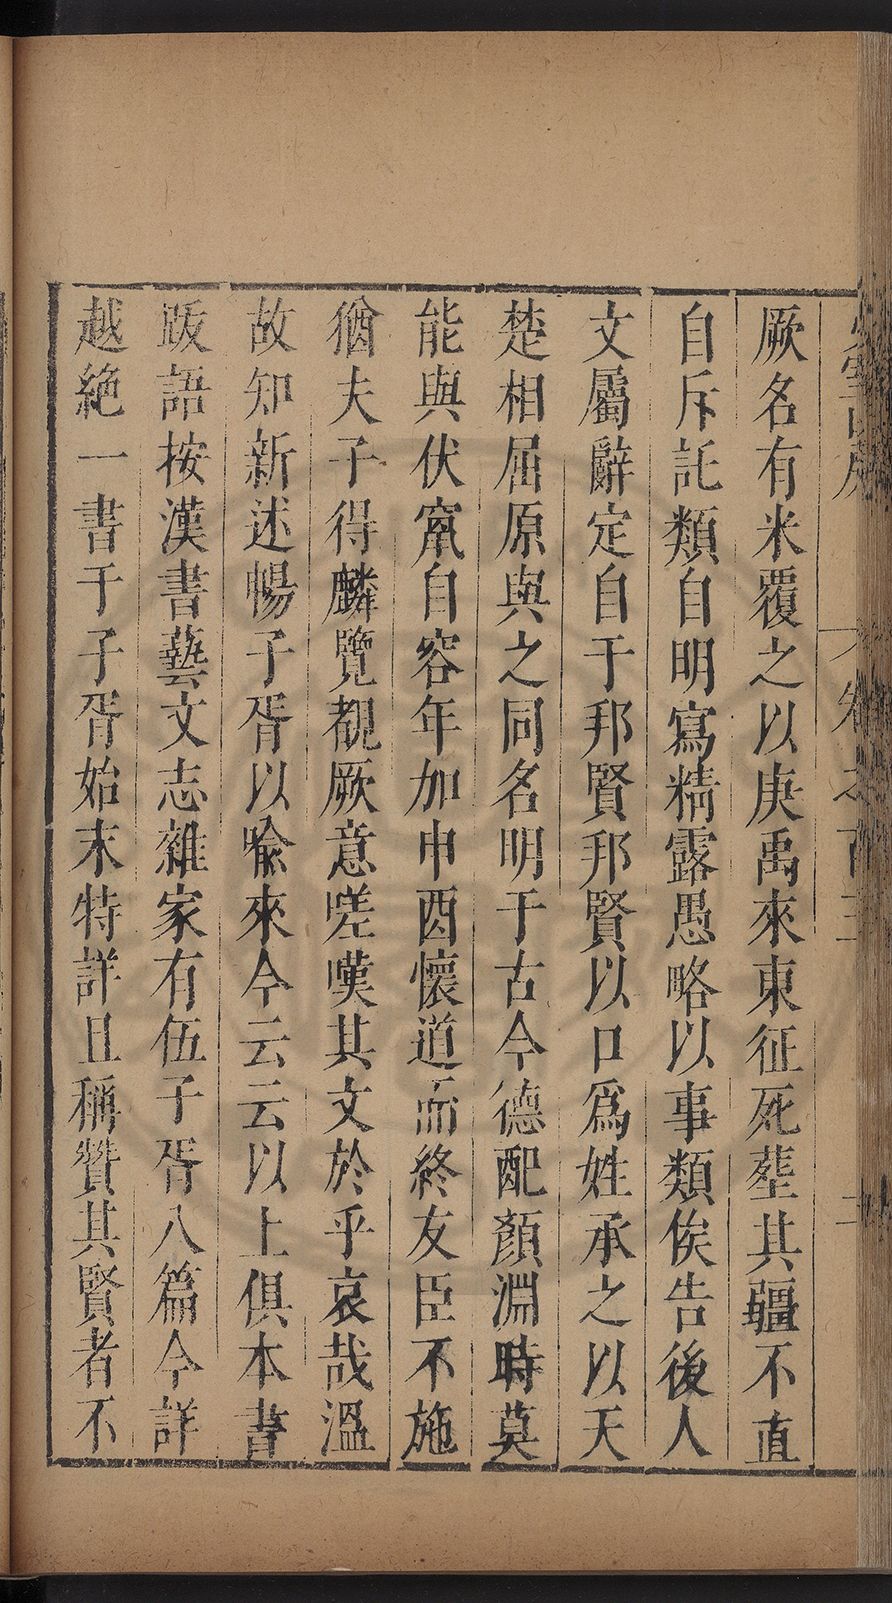 厥名有米覆之以庚禹來東征死塟其疆不直
自斥託類自明寫精露愚略以事類俟告後人
文屬辭定自于邦賢邦賢以口爲姓承之以天
楚相屈原與之同名明于古今德配顏淵時莫
能與伏竄自容年加申酉懷道而終友臣不施
猶夫子得麟覽覩厥意嗟嘆其文於乎哀哉溫
故知新述暢子胥以喻來今云云以上俱本書
跋語按漢書藝文志雜家有伍子胥八篇今詳
越絶一書于子胥始末特詳且稱贊其賢者不